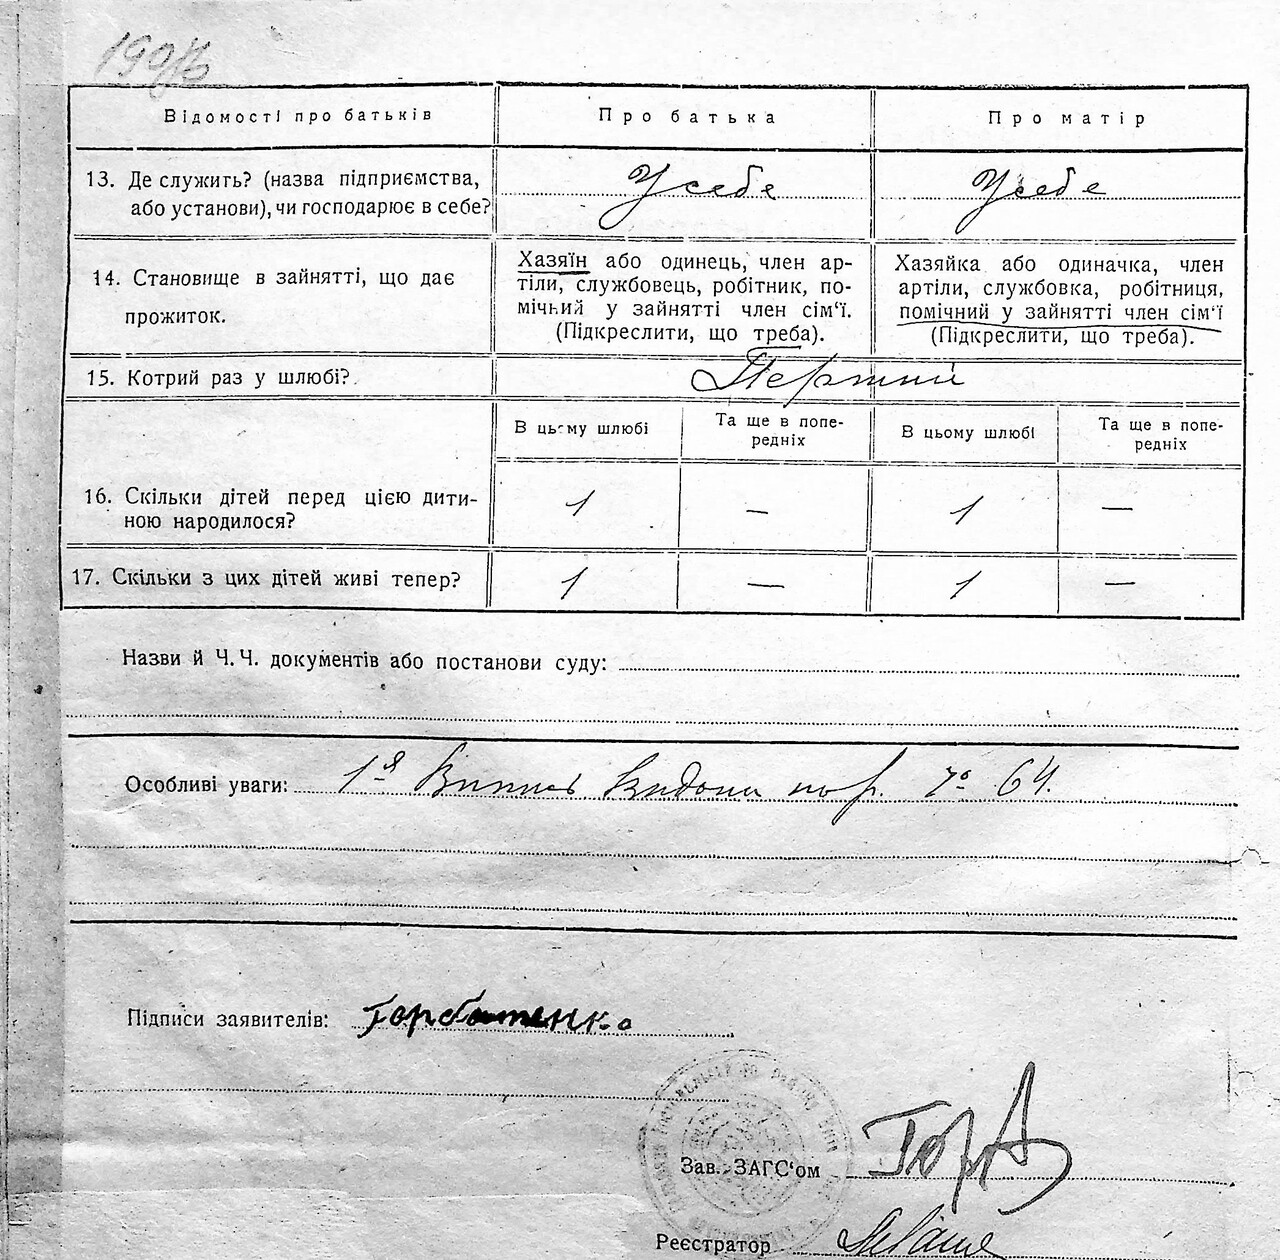 Відомості про батьків
Про батька
Про матір
13. Де служить? (назва підприємства,
або установи), чи господарює в себе?
У себе
У себе
14. Становище в зайнятті, що дає
прожиток.
Хазяїн або одинець, член ар-
тіли, службовець, робітник, по-
мічний у зайнятті член сім'ї.
(Підкреслити, що треба).
Хазяйка або одиначка, член
артіли, службовка, робітниця,
помічний у зайнятті член сім'ї
(Підкреслити, що треба).
15. Котрий раз у шлюбі?
В цьому шлюбі
Та ще в попе-
редніх
В цьому шлюбі
Та ще в попе-
редніх
16. Скільки дітей перед цією дити-
ною народилося?
1
—
1
—
17. Скільки з цих дітей живі тепер?
1
—
1
—
Назви й Ч.Ч. документів або постанови суду:
Особливі уваги: 1-я 64.
Підписи заявителів: Горбатенко
Зав. ЗАГС'ом
Реєстратор